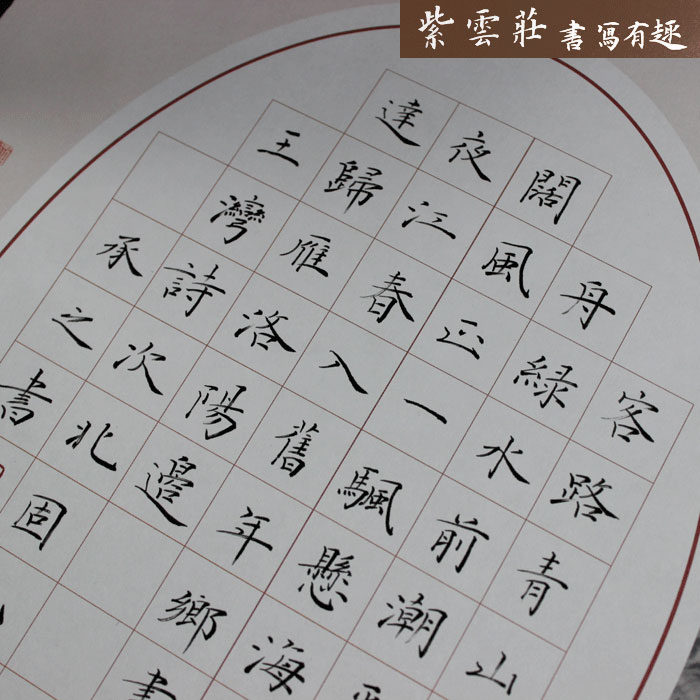 紫雲莊 書寫有趣
客路青山
舟綠水前潮
闊風正一颿懸海
夜江春入舊年鄉書
達歸雁洛陽邊
王灣詩次北固
承之書